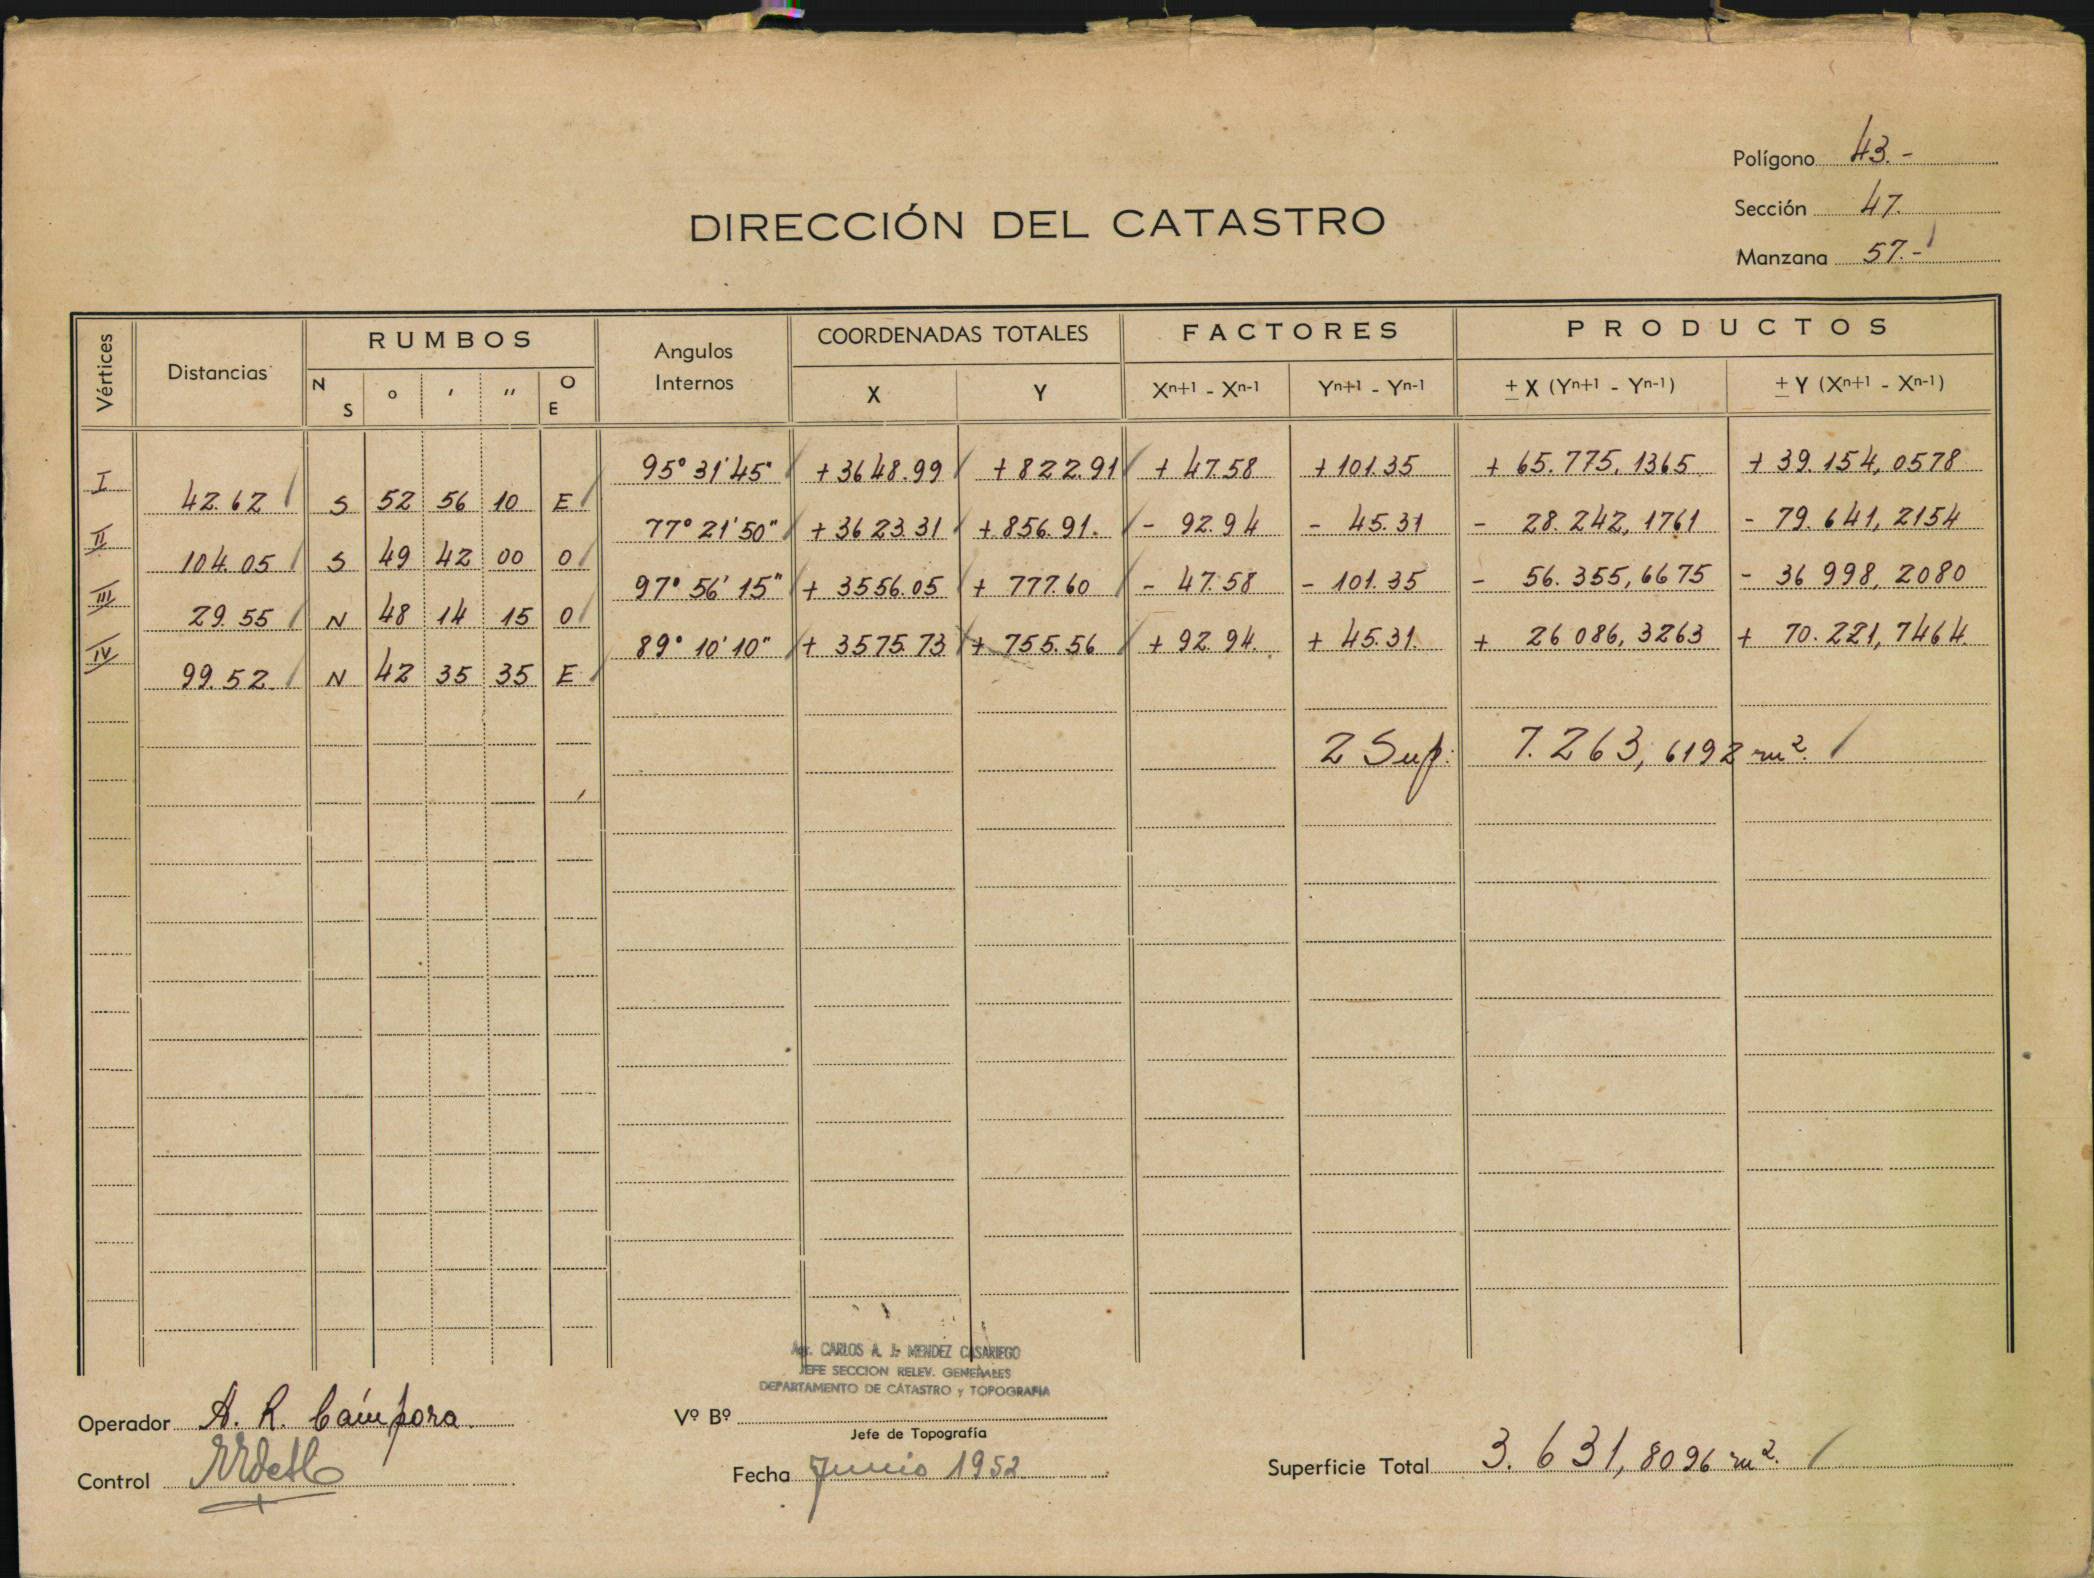 Polígono 43.-
Sección 47.
Manzana 57.-
DIRECCIÓN DEL CATASTRO
Vértices Distancias RUMBOS Angulos Internos COORDENADAS TOTALES FACTORES PRODUCTOS
N S ° ' '' O E X Y Xn+1 - Xn-1 Yn+1 - Yn-1 ± X (Yn+1 - Yn-1) ± Y (Xn+1 - Xn-1)
I 95° 31' 45" +3648.99 +822.91 +47.58 +101.35 +65.775,1365 +39.154,0578
42.62 S 52 56 10 E
II 77° 21' 50" +3623.31 +856.91. -92.94 -45.31 -28.242,1761 -79.641,2154
104.05 S 49 42 00 O
III 97° 56' 15" +3556.05 +777.60 -47.58 -101.35 -56.355,6675 -36 998,2080
29.55 N 48 14 15 O
IV 89° 10' 10" +3575.73 +755.56 +92.94. +45.31. +26 086,3263 +70.221,7464.
99.52. N 42 35 35 E
2 Sup: 7.263,6192 m².
Agr. CARLOS A. J. MENDEZ CASARIEGO
JEFE SECCION RELEV. GENERALES
DEPARTAMENTO DE CATASTRO y TOPOGRAFIA
Operador A. R. Cámpora.
Vº Bº
Jefe de Topografía
Control
Fecha Junio 1952
Superficie Total 3.631,8096 m².